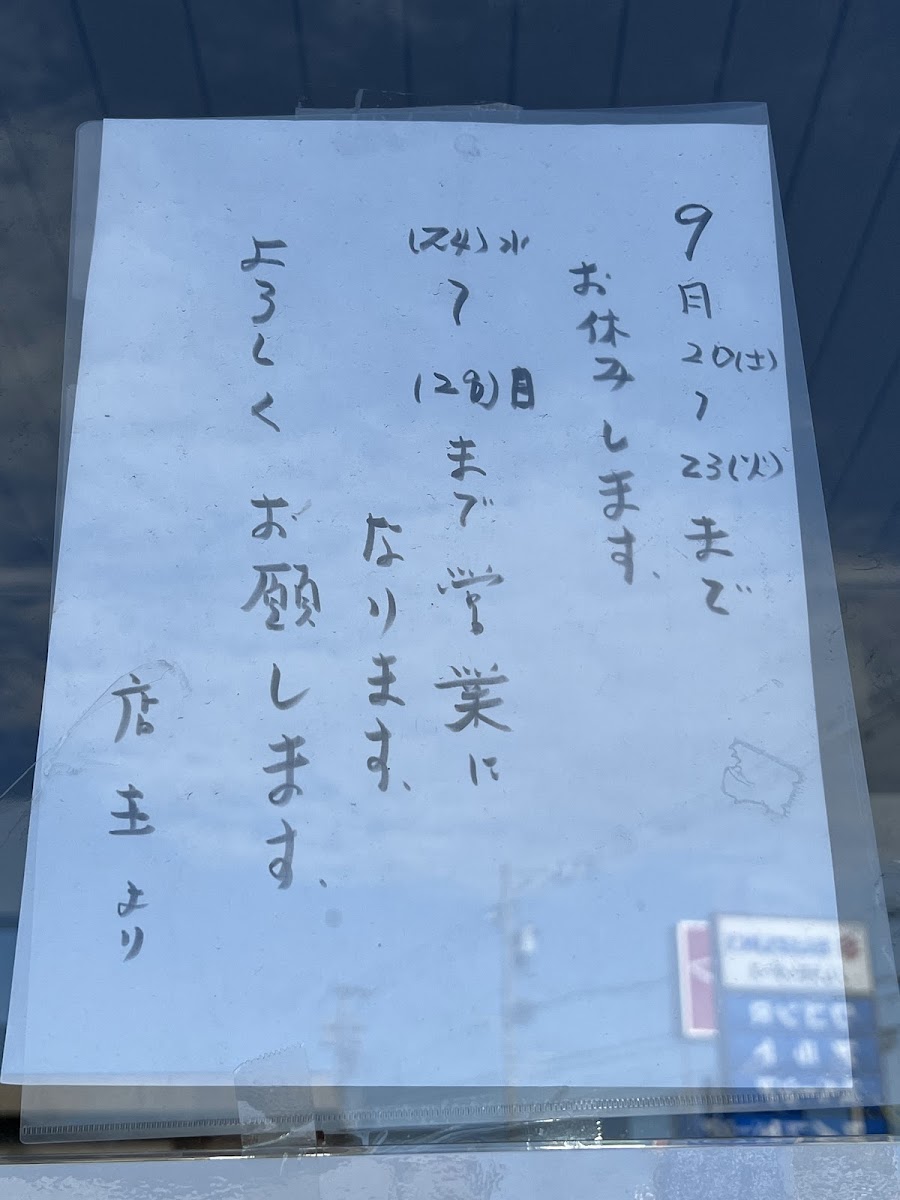 9月20(土)〜23(火)まで
お休みします、
(24)水〜(28)日まで営業に
なります、
よろしくお願します、
店主より